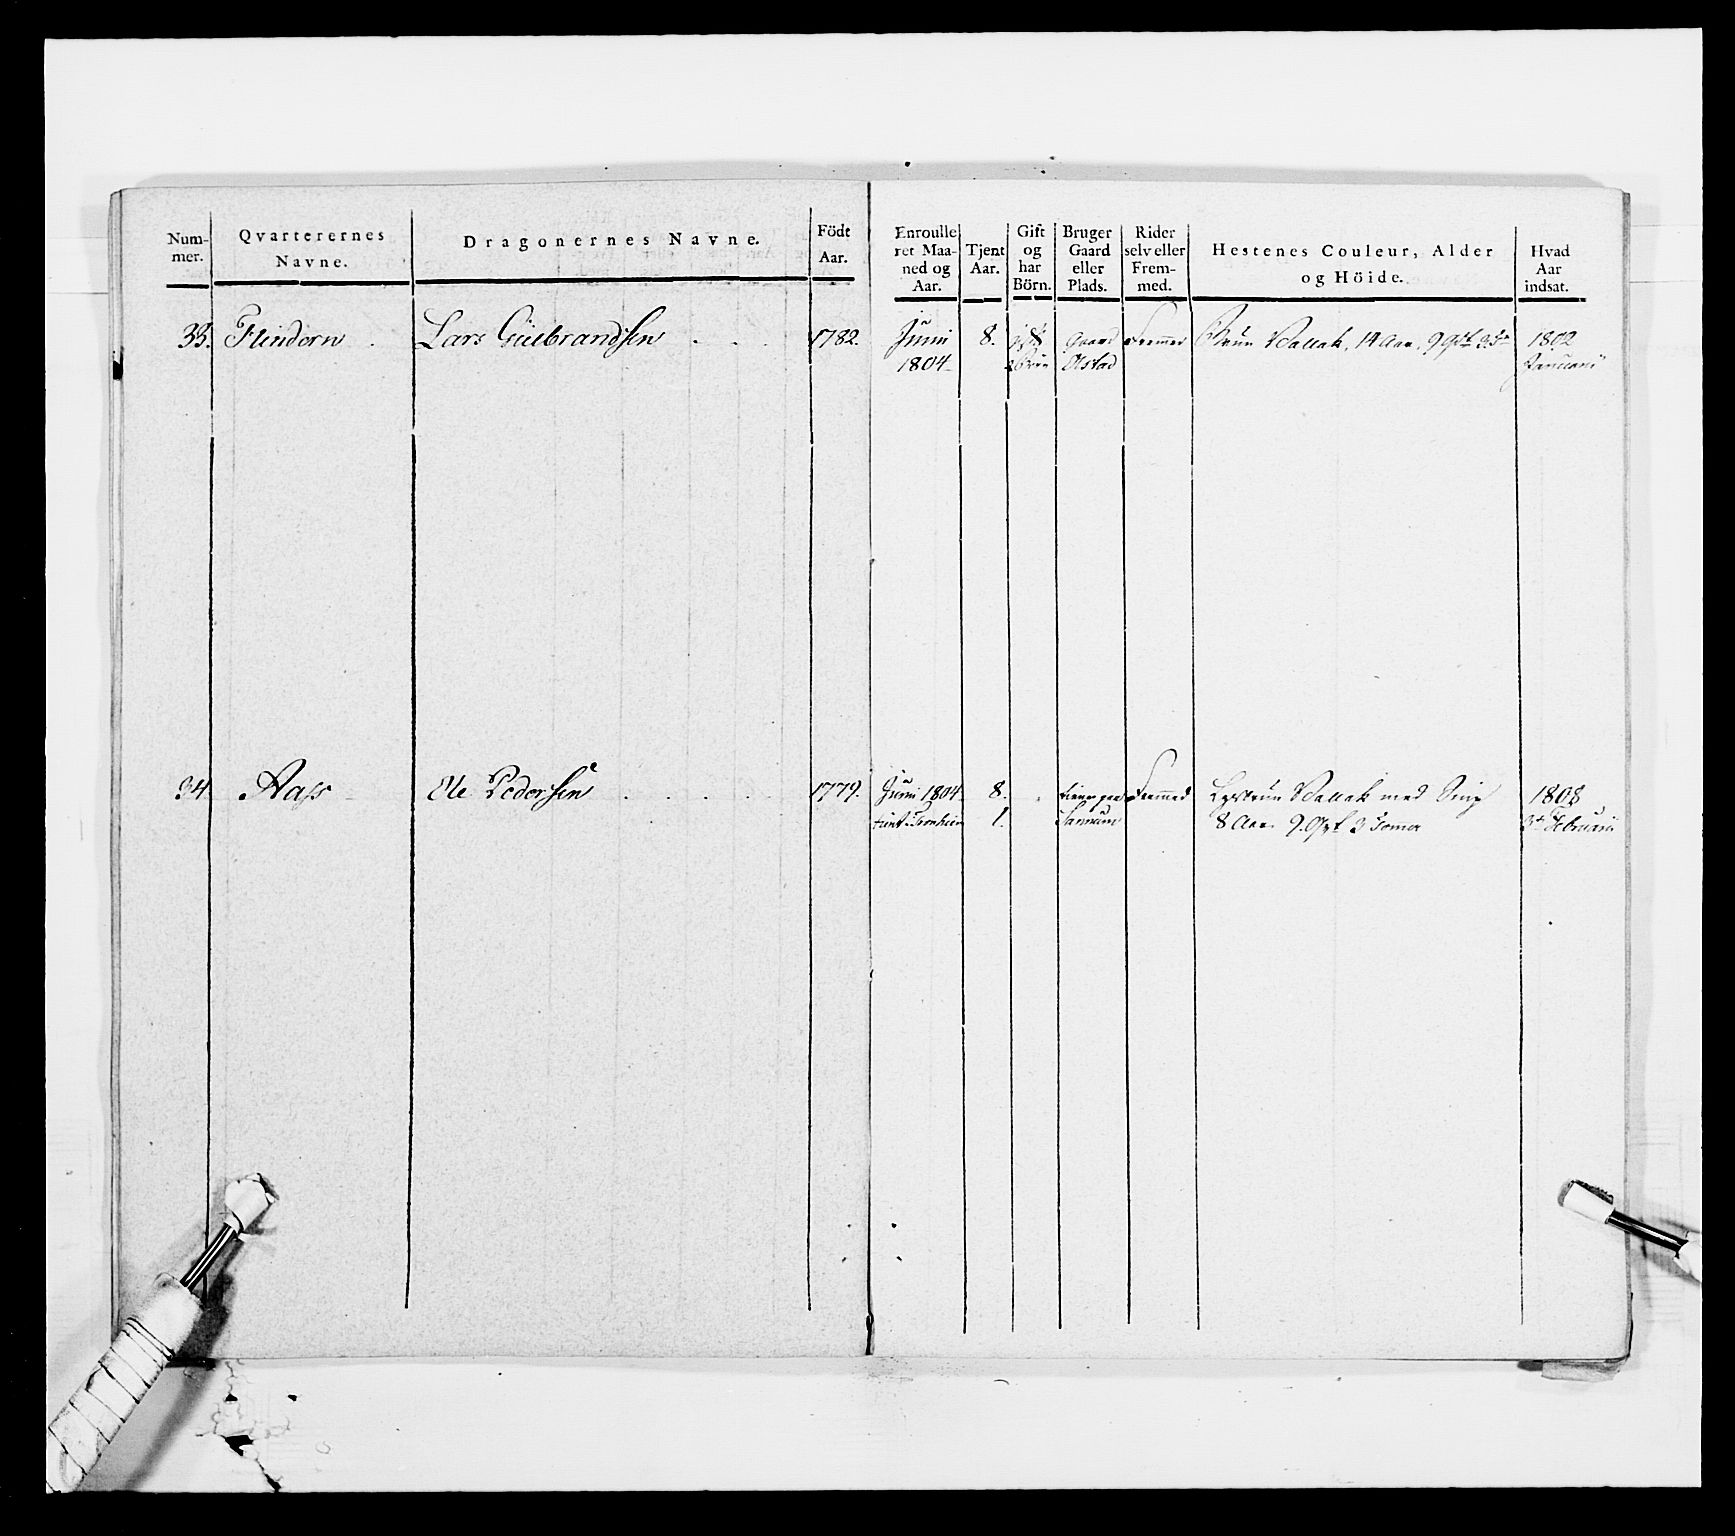 Num-
mer.
Qvarterernes
Navne.
Dragonernes Navne.
Födt
Aar.
Enroulle
ret Maa-
ned og
Aar.
Tjent
Aar.
Gift
og
har
Börn.
Bruger
Gaard
eller
Plads.
Rider
selv eller
Frem-
med.
Hestenes Couleur, Alder
og Höide.
Hvad
Aar
indsat.
33. Flindern . Lars Gulbrandsen . . . 1782. Juni 8. gift Gaard Fremmed Brun Vallak, 14 Aar, 9 Qvt 1802
1804 Olstad Januarii
34 Aass Ole Pedersen . . . . 1779. Juni 1804 8. tiener paa Fremmed Lysbrun Vallak med
1. 8 Aar 9. Qvt 3 Tommer Februarii
1808